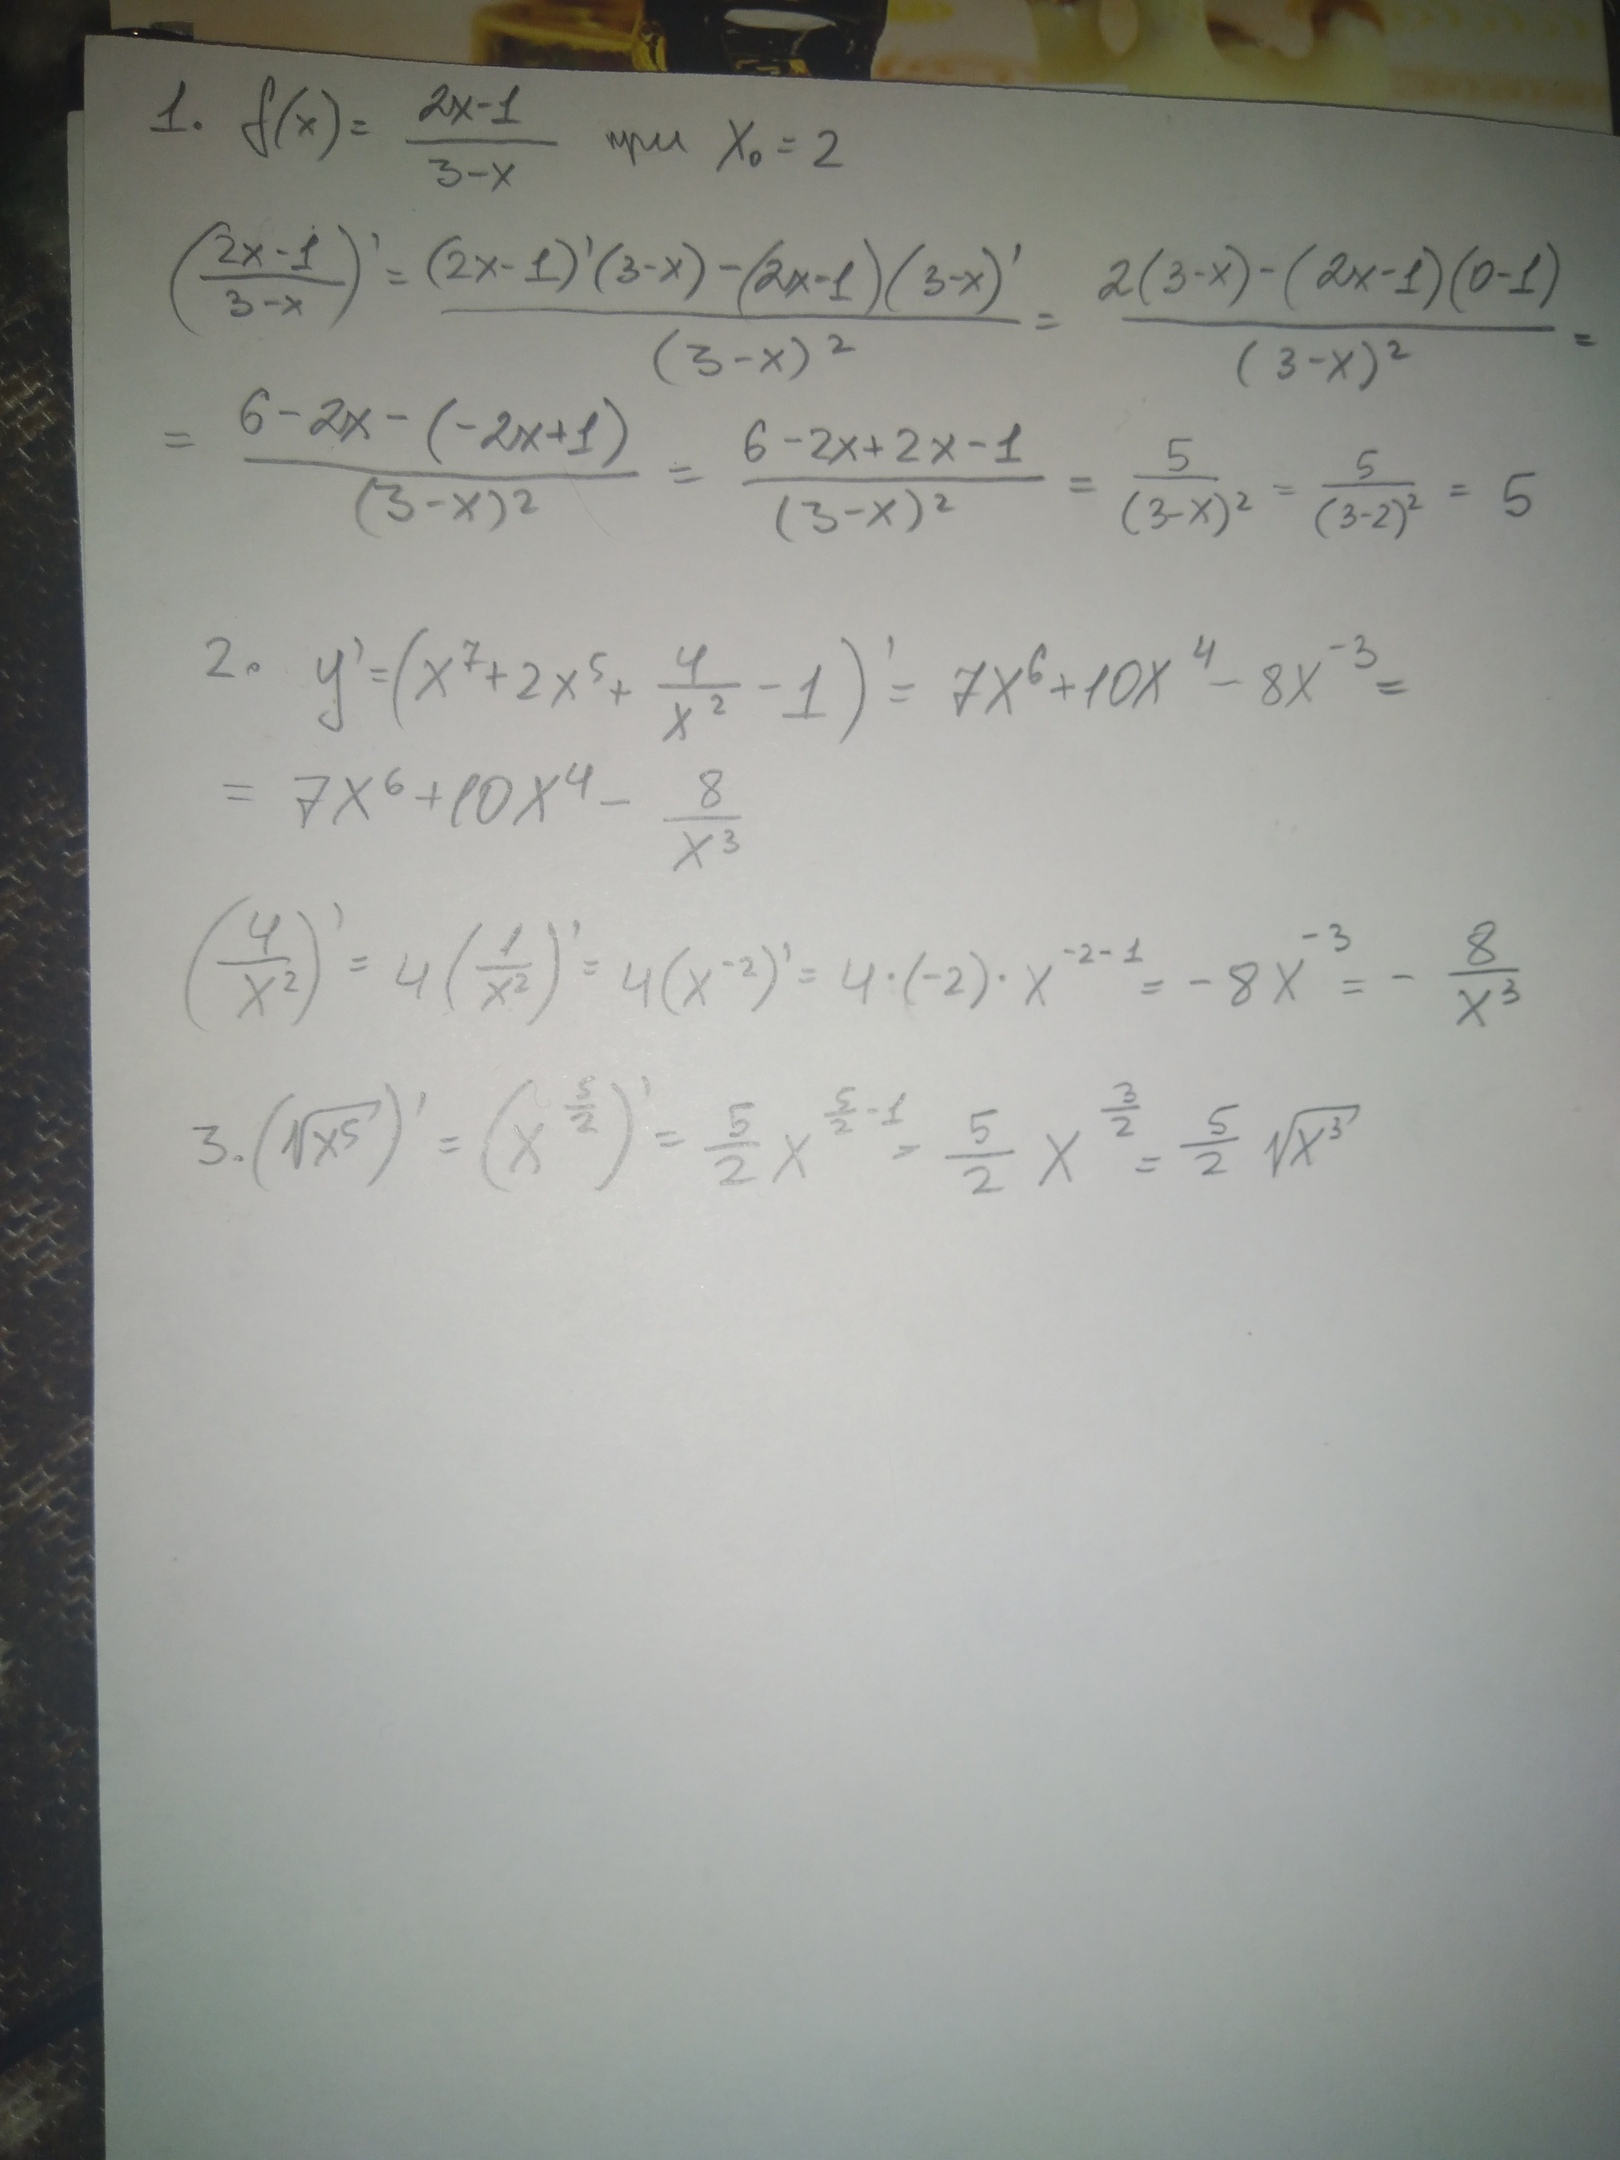 1. f(x) = (2x-1)/(3-x) при X₀ = 2
((2x-1)/(3-x))' = ((2x-1)'(3-x)-(2x-1)(3-x)')/(3-x)² = (2(3-x)-(2x-1)(0-1))/(3-x)² =
= (6-2x-(-2x+1))/(3-x)² = (6-2x+2x-1)/(3-x)² = 5/(3-x)² = 5/(3-2)² = 5
2. y' = (x⁷+2x⁵+4/x²-1)' = 7x⁶+10x⁴-8x⁻³ =
= 7x⁶+10x⁴-8/x³
(4/x²)' = 4(1/x²)' = 4(x⁻²)' = 4·(-2)·x⁻²⁻¹ = -8x⁻³ = -8/x³
3. (√x⁵)' = (x^(5/2))' = 5/2 x^(5/2-1) = 5/2 x^(3/2) = 5/2 √x³